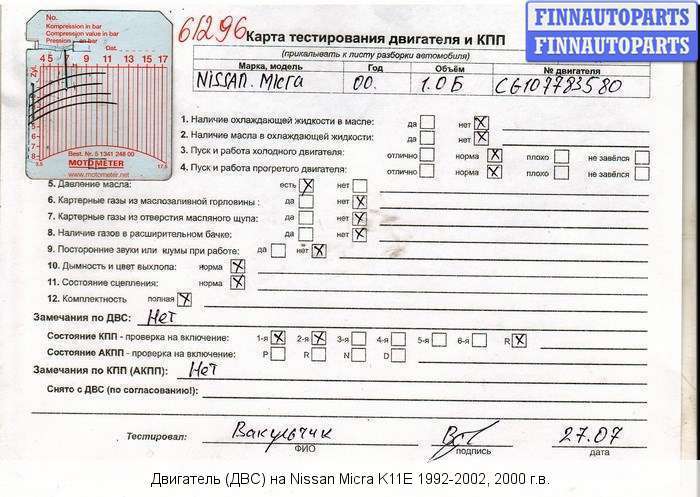 No.
Kompression in bar
Compression value in bar
Pression en bar
Dat.
4 5 7 9 11 13 15 17
Zyl.
8
3.5 17.5
Best. Nr. 5 1341 248 00
MOTOMETER
www.motometer.net
61296
FINNAUTOPARTS
FINNAUTOPARTS
Карта тестирования двигателя и КПП
(прикалывать к листу разборки автомобиля)
Марка, модель Год Объём № двигателя
NISSAN. Micra 00. 1.0 Б CG107783580
1. Наличие охлаждающей жидкости в масле: да нет X
2. Наличие масла в охлаждающей жидкости: да нет X
3. Пуск и работа холодного двигателя: отлично норма X плохо не завёлся
4. Пуск и работа прогретого двигателя: отлично норма X плохо не завёлся
5. Давление масла: есть X нет
6. Картерные газы из маслозаливной горловины : да нет X
7. Картерные газы из отверстия масляного щупа: да нет X
8. Наличие газов в расширительном бачке: да нет X
9. Посторонние звуки или шумы при работе: да нет X
10. Дымность и цвет выхлопа: норма X
11. Состояние сцепления: норма X
12. Комплектность полная X
Замечания по ДВС: Нет
Состояние КПП - проверка на включение: 1-я X 2-я X 3-я 4-я 5-я 6-я R X
Состояние АКПП - проверка на включение: P R N D
Замечания по КПП (АКПП): Нет
Снято с ДВС (по согласованию!):
Тестировал: Вакульчик 27.07
ФИО подпись дата
Двигатель (ДВС) на Nissan Micra K11E 1992-2002, 2000 г.в.